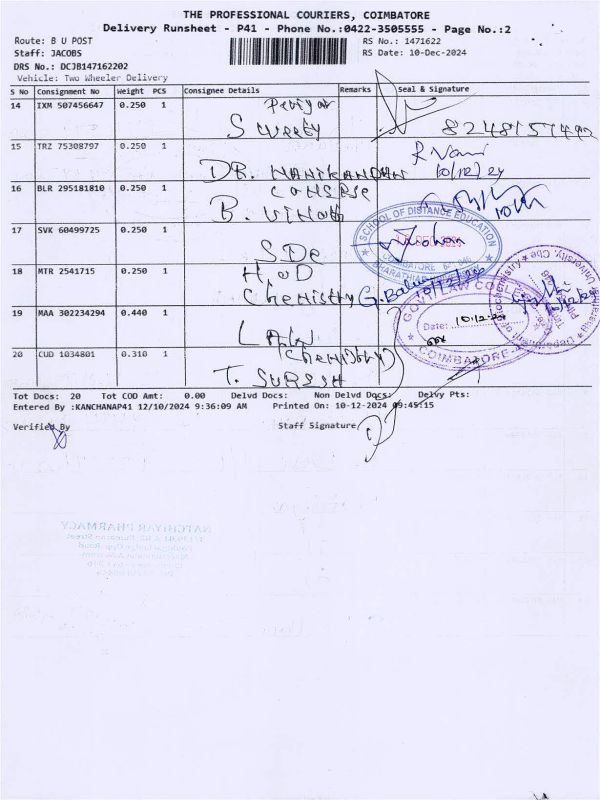 THE PROFESSIONAL COURIERS, COIMBATORE
Delivery Runsheet - P41 - Phone No.:0422-3505555 - Page No.:2
Route: B U POST
RS No.: 1471622
Staff: JACOBS
RS Date: 10-Dec-2024
DRS No.: DCJB147162202
Vehicle: Two Wheeler Delivery
S No Consignment No Weight PCS Consignee Details Remarks Seal & Signature
14 IXM 507456647 0.250 1 Periyar
Sweety 8248157492
15 TRZ 75308797 0.250 1
DR. MANIKANDAN 10/12/24
16 BLR 295181810 0.250 1
B. VINOTH
SCHOOL OF DISTANCE EDUCATION
17 SVK 60499725 0.250 1
SDE
18 MTR 2541715 0.250 1 HOD
Chemistry G. Balu 10/12/24
GOVT LAW COLLEGE
19 MAA 302234294 0.440 1
Date: 10-12-24
LAW
COIMBATORE
20 CUD 1034801 0.310 1 (Chemistry)
T. SURESH
Tot Docs: 20 Tot COD Amt: 0.00 Delvd Docs: Non Delvd Docs: Delvy Pts:
Entered By :KANCHANAP41 12/10/2024 9:36:09 AM Printed On: 10-12-2024 09:45:15
Verified By Staff Signature
NATCHIYAR PHARMACY